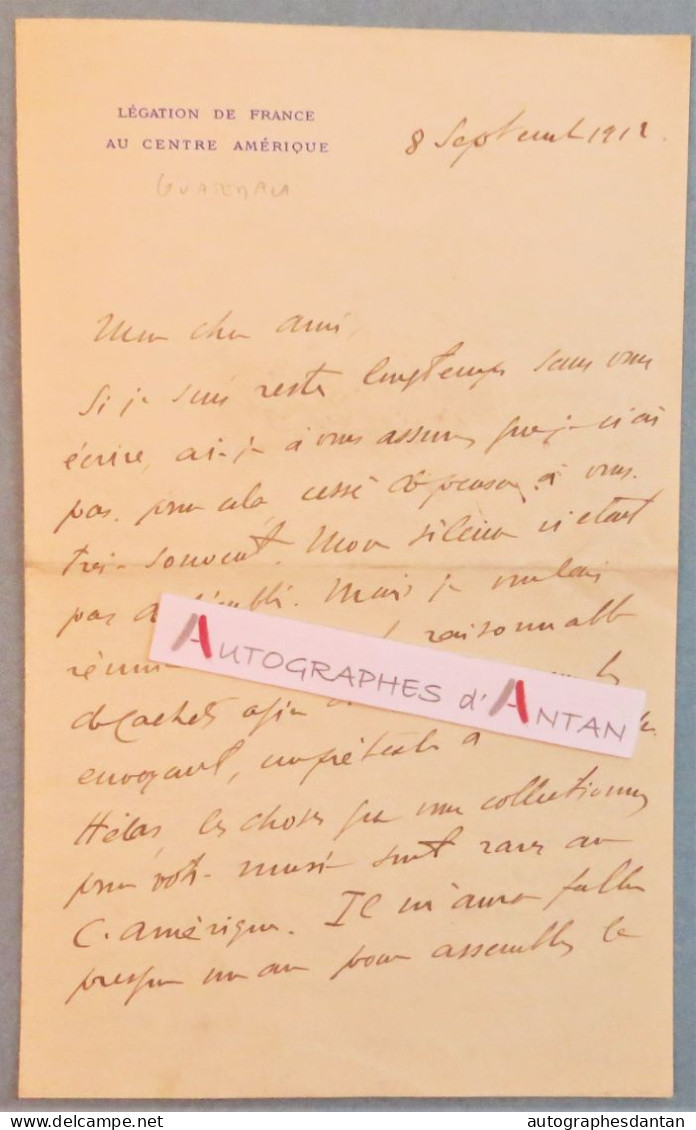 LÉGATION DE FRANCE
AU CENTRE AMÉRIQUE
8 Septembre 1912.
GUATEMALA
Mon cher ami,
Si je suis resté longtemps sans vous
écrire, ai-je à vous assurer que je n'ai
pas, pour cela, cessé de penser à vous
très souvent. Mon silence n'était
pas d'oubli. Mais je voulais
réunir raisonnable
de cachets afin
envoyant, un prétexte à
Hélas, les choses que vous collectionnez
pour votre musée sont rares au
C. Amérique. Il m'aura fallu
presque un an pour assembler le
AUTOGRAPHES d'ANTAN
delcampe.net
autographesdantan